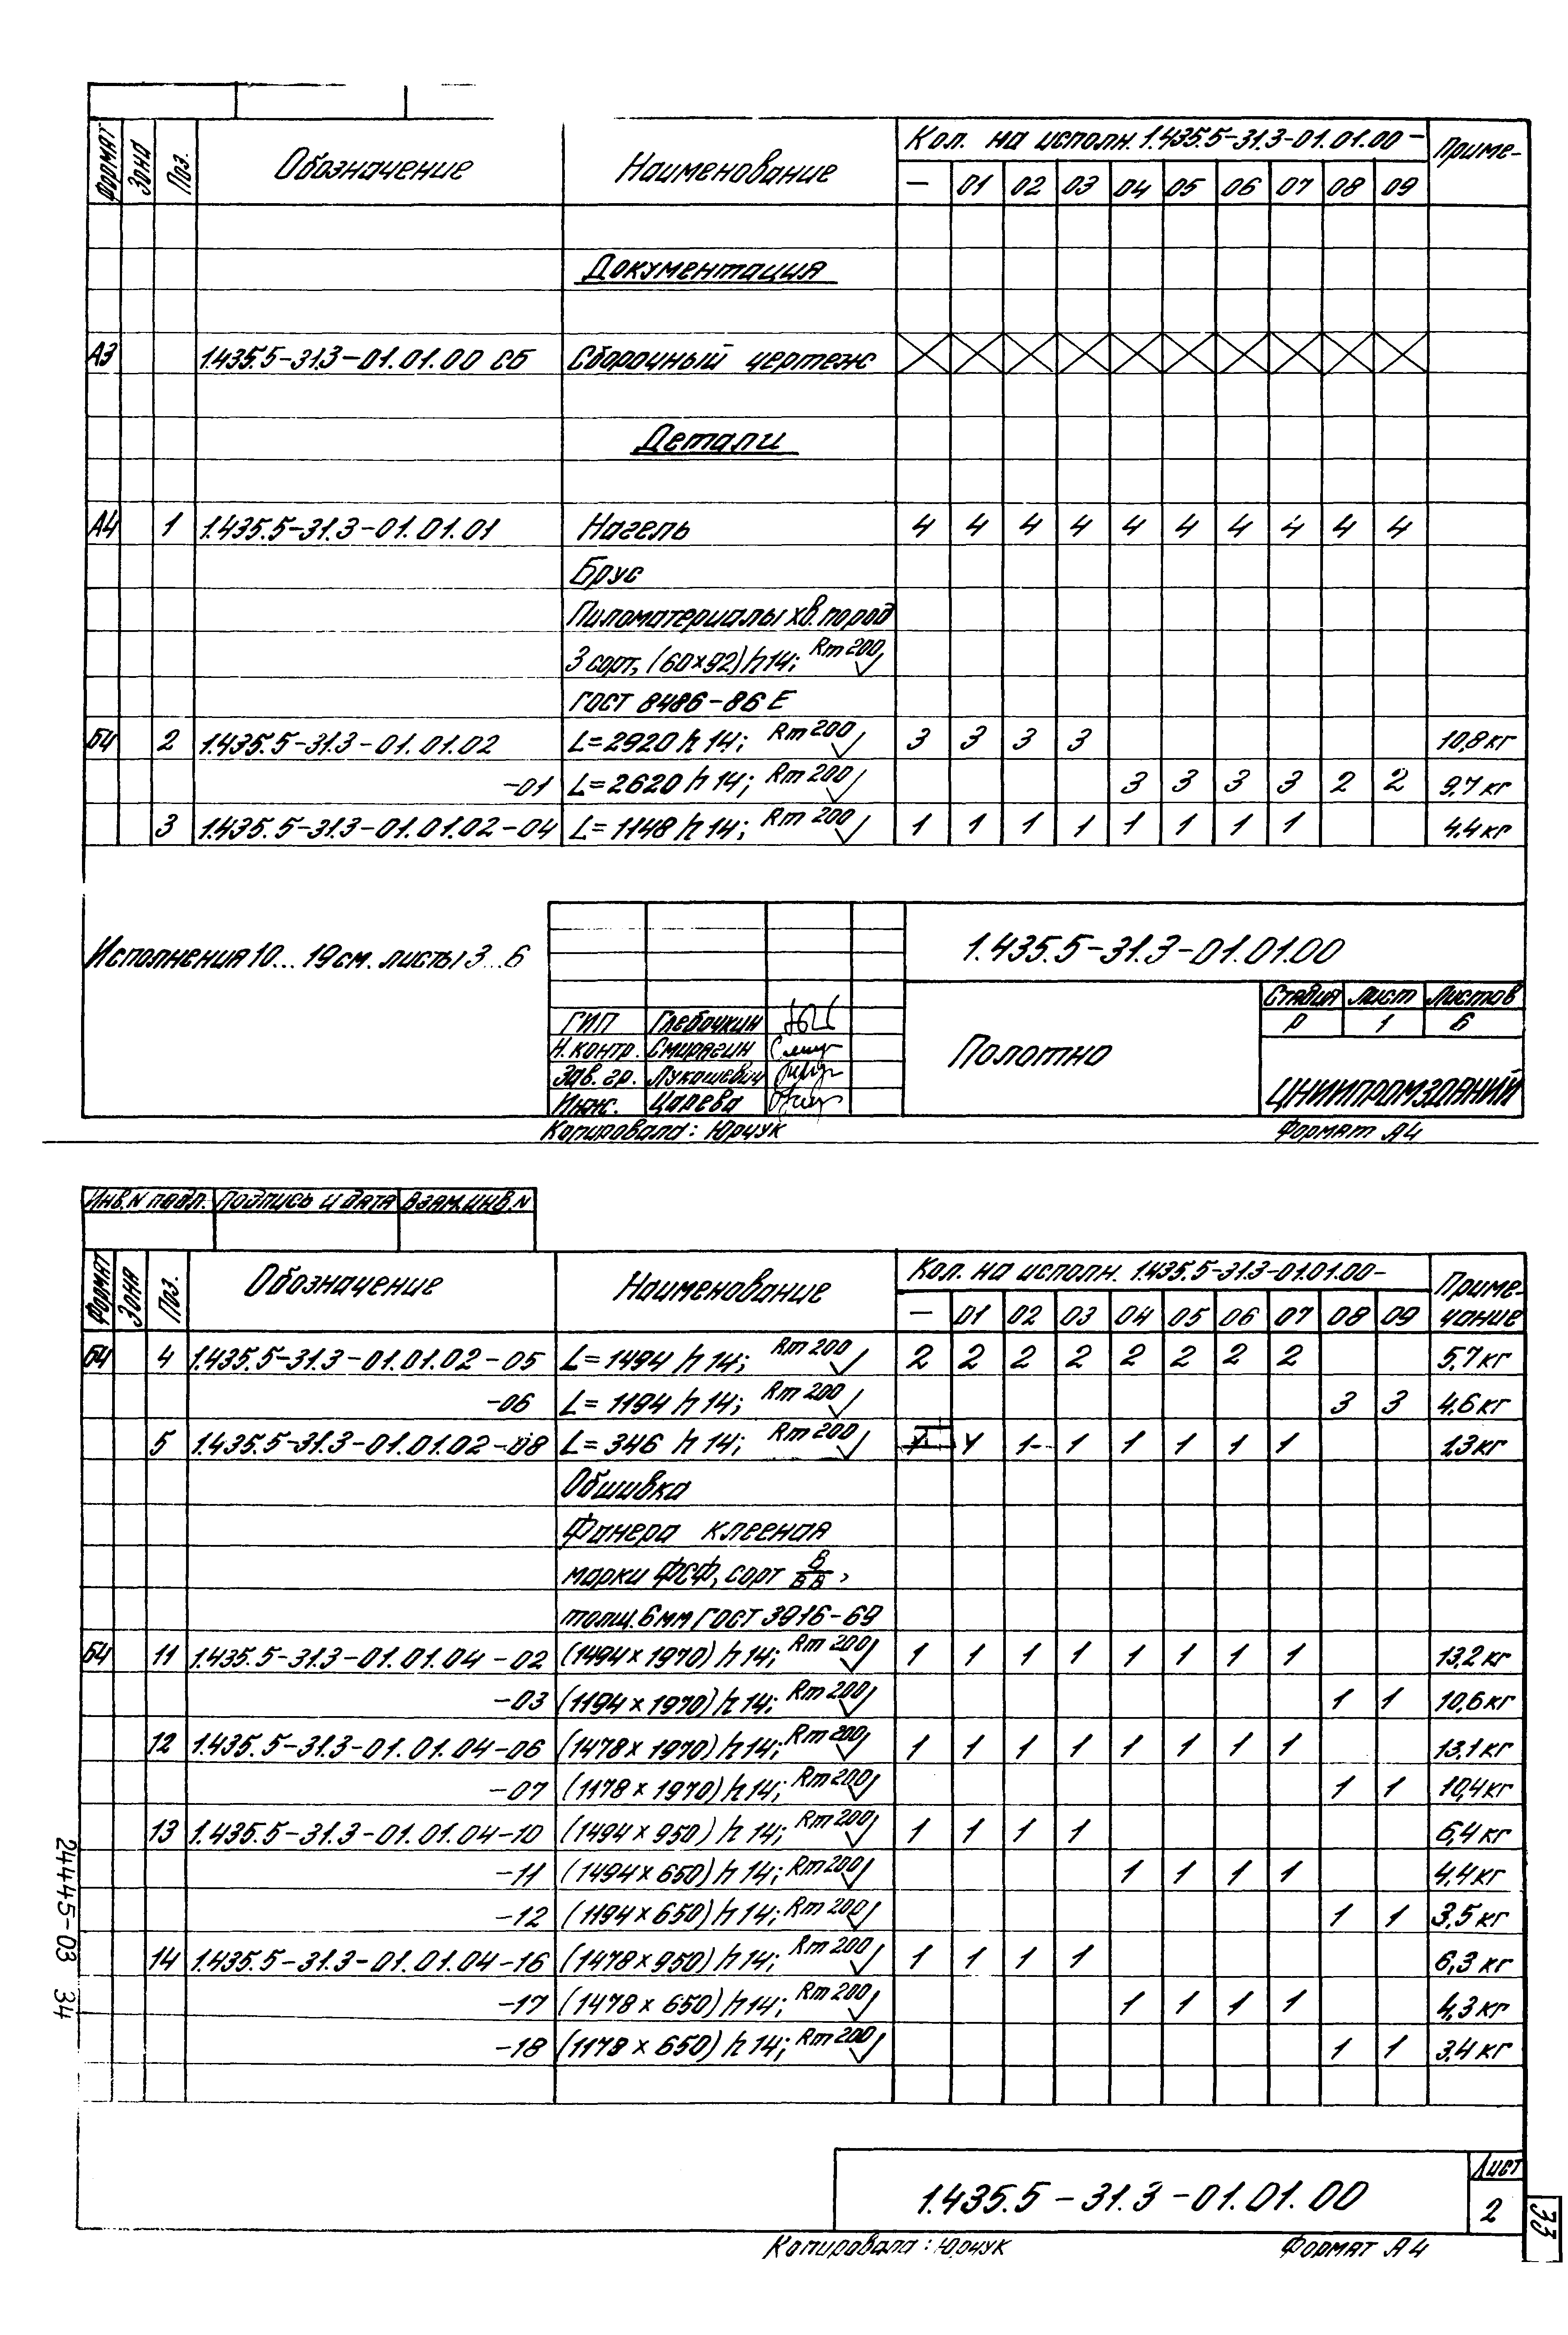 Формат Зона Поз. Обозначение Наименование Кол. на исполн. 1.435.5-31.3-01.01.00 - Приме-
— 01 02 03 04 05 06 07 08 09
Документация
А3 1.435.5-31.3-01.01.00 СБ Сборочный чертеж
Детали
А4 1 1.435.5-31.3-01.01.01 Нагель 4 4 4 4 4 4 4 4 4 4
Брус
Пиломатериалы хв. пород
3 сорт, (60×92) h14; Rm 200
ГОСТ 8486-86 Е
БЧ 2 1.435.5-31.3-01.01.02 L=2920 h14; Rm 200 3 3 3 3 10,8 кг
-01 L=2620 h14; Rm 200 3 3 3 3 2 2 9,7 кг
3 1.435.5-31.3-01.01.02-04 L=1148 h14; Rm 200 1 1 1 1 1 1 1 1 4,4 кг
Исполнения 10...19 см. листы 3...6
1.435.5-31.3-01.01.00
Стадия Лист Листов
Р 1 6
ГИП Глебочкин
Н. контр. Смирягин
Зав. гр. Лукашевич
Инж. Царева
Полотно
ЦНИИПРОМЗДАНИЙ
Копировала: Юрчук Формат А4
Инв. N подл. Подпись и дата Взам. инв. N
Формат Зона Поз. Обозначение Наименование Кол. на исполн. 1.435.5-31.3-01.01.00- Приме-
чание
— 01 02 03 04 05 06 07 08 09
БЧ 4 1.435.5-31.3-01.01.02-05 L=1494 h14; Rm 200 2 2 2 2 2 2 2 2 5,7 кг
-06 L=1194 h14; Rm 200 3 3 4,6 кг
5 1.435.5-31.3-01.01.02-08 L=346 h14; Rm 200 1 1 1 1 1 1 1 1,3 кг
Обшивка
Фанера клееная
марки ФСФ, сорт В/ВВ,
толщ. 6 мм ГОСТ 3916-69
БЧ 11 1.435.5-31.3-01.01.04-02 (1494×1970) h14; Rm 200 1 1 1 1 1 1 1 1 13,2 кг
-03 (1194×1970) h14; Rm 200 1 1 10,6 кг
12 1.435.5-31.3-01.01.04-06 (1478×1970) h14; Rm 200 1 1 1 1 1 1 1 1 13,1 кг
-07 (1178×1970) h14; Rm 200 1 1 10,4 кг
13 1.435.5-31.3-01.01.04-10 (1494×950) h14; Rm 200 1 1 1 1 6,4 кг
-11 (1494×650) h14; Rm 200 1 1 1 1 4,4 кг
-12 (1194×650) h14; Rm 200 1 1 3,5 кг
14 1.435.5-31.3-01.01.04-16 (1478×950) h14; Rm 200 1 1 1 1 6,3 кг
-17 (1478×650) h14; Rm 200 1 1 1 1 4,3 кг
-18 (1178×650) h14; Rm 200 1 1 3,4 кг
24445-03 34
1.435.5-31.3-01.01.00
Лист
2
33
Копировала: Юрчук Формат А4